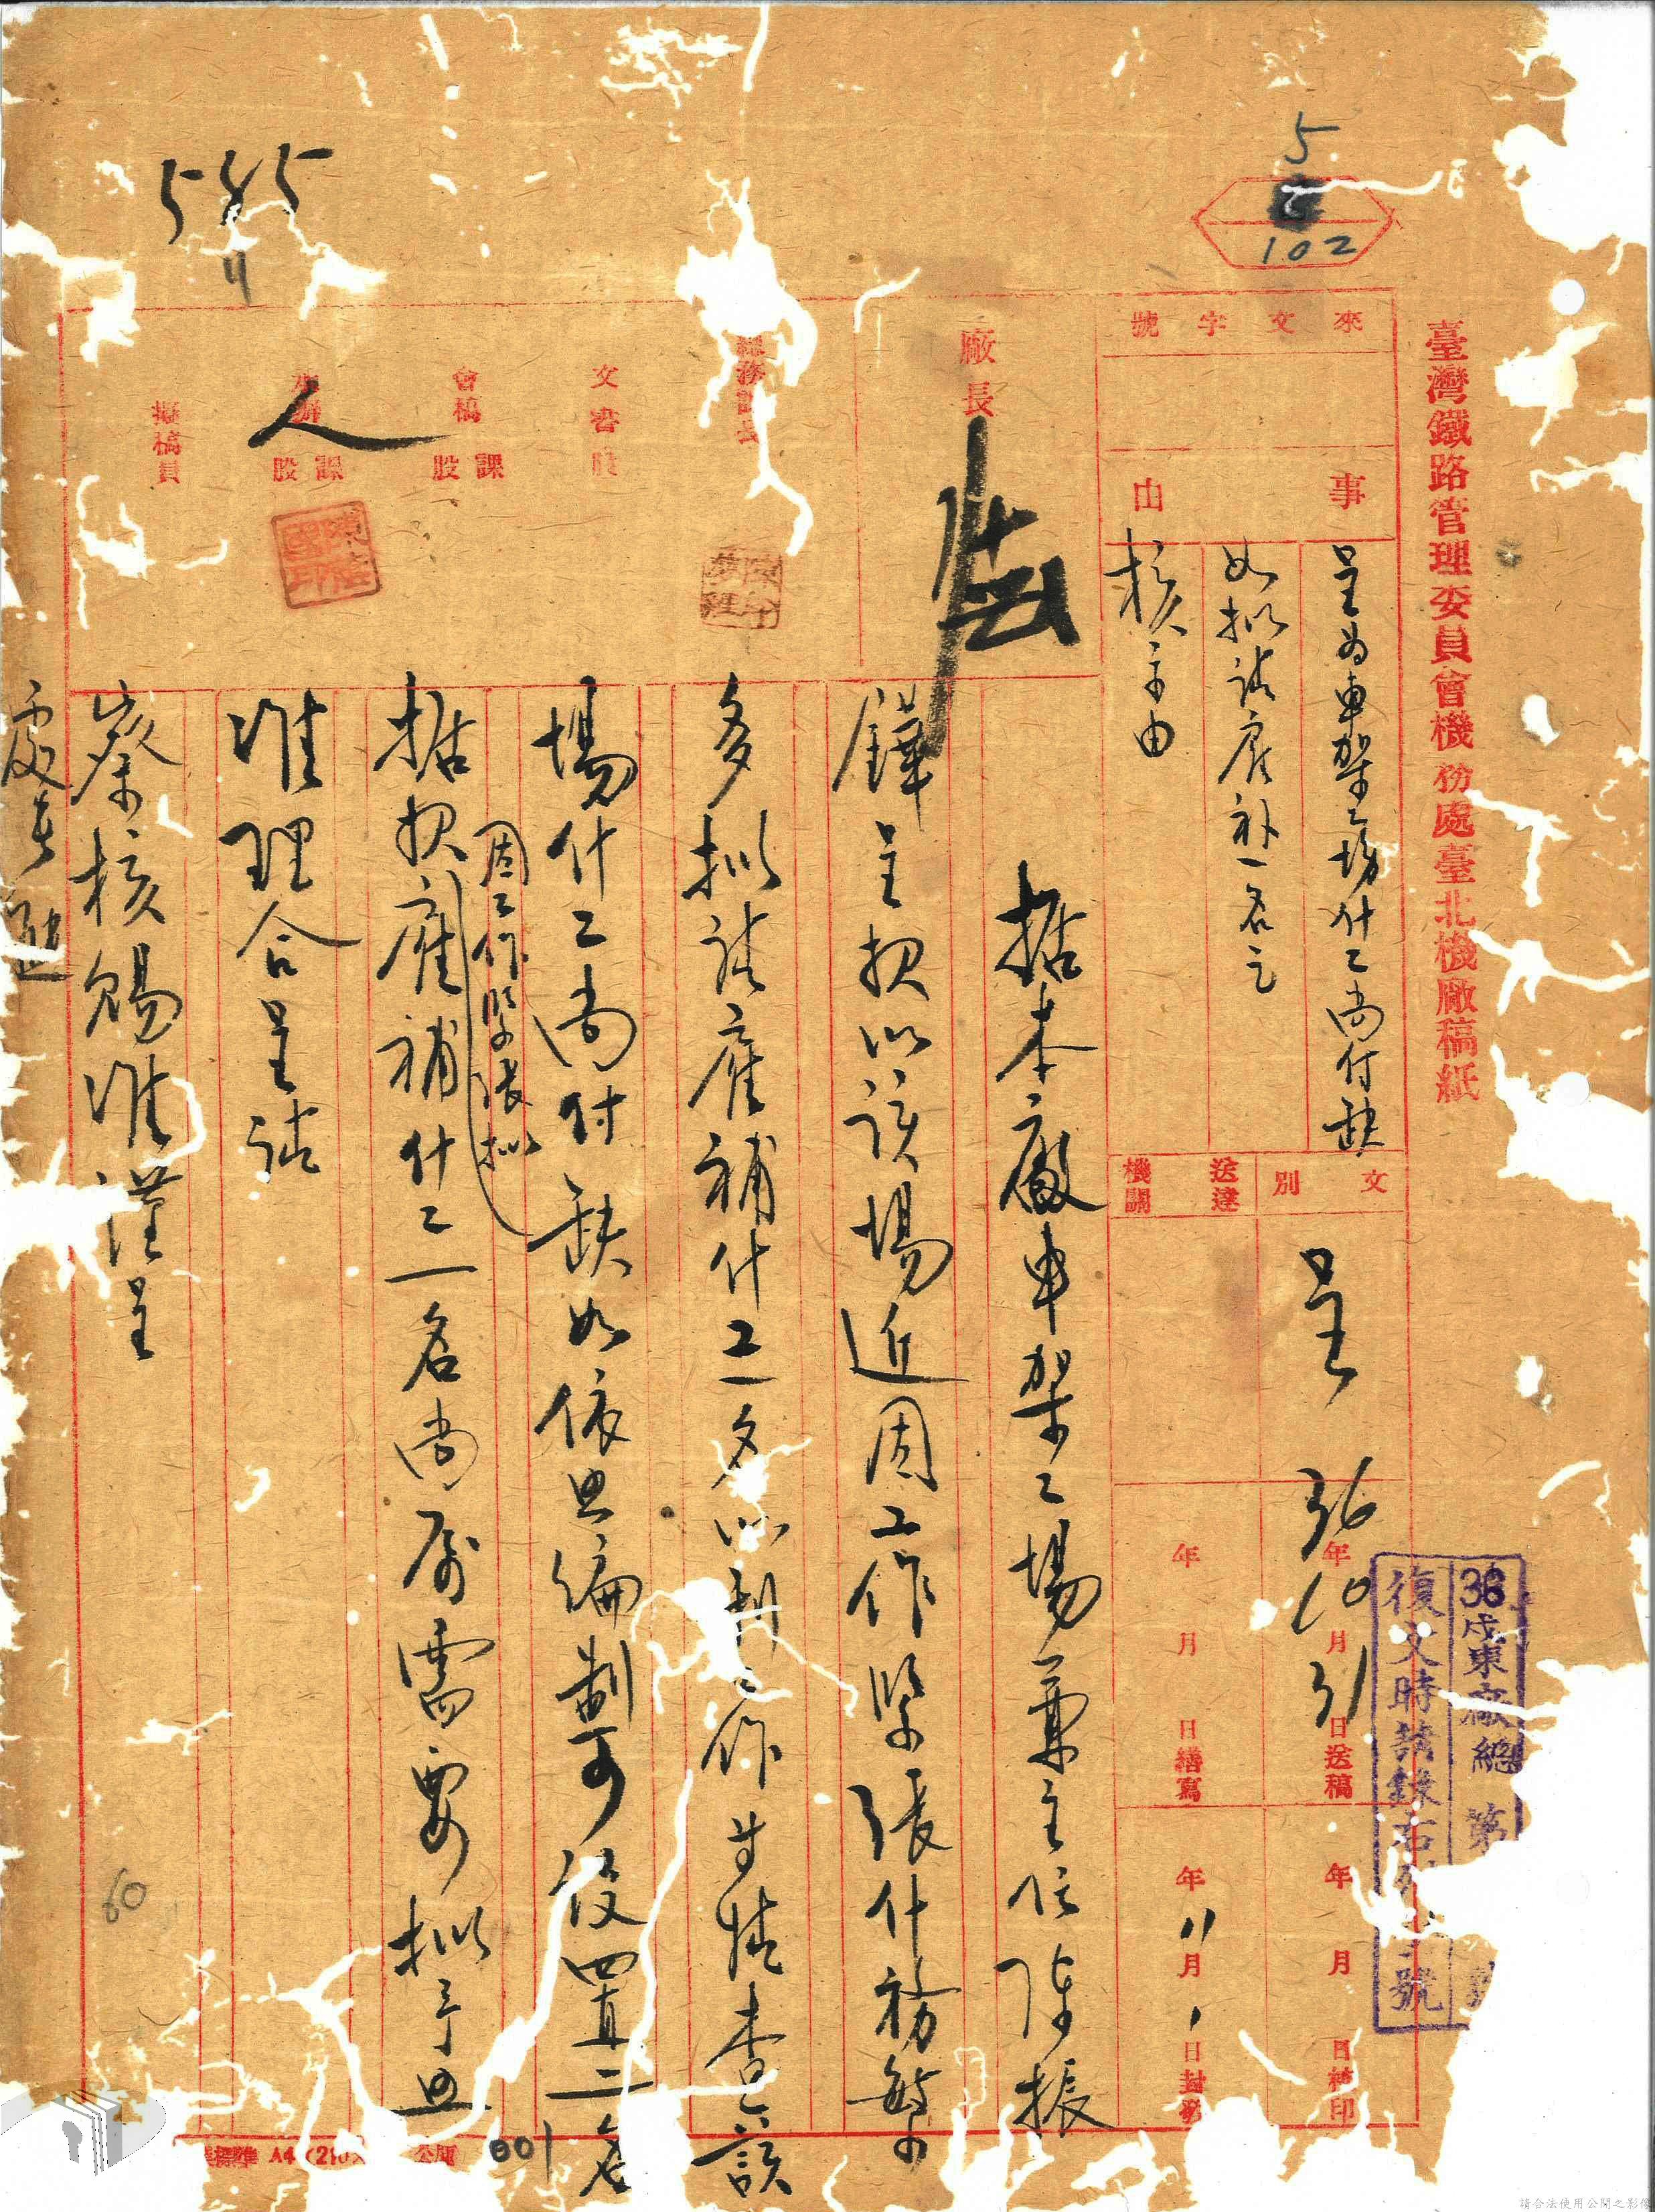 臺灣鐵路管理委員會機務處臺北機廠稿紙
5
102
545
11
來文字號
事由
呈為車架工場什工尚付缺
如拟請雇补一名乞
核示由
文別
呈
送達機關
36年10月31日送稿
年月日繕寫
年月日補印
年11月1日封發
36戌東廠總 第
復文時請錄右列
號
廠長
總務課長
文書股
會稿課股
承辦課股
人
擬稿員
据本廠車架工場兼主任陳振
鏵呈報以該場近因工作緊張什務繁
多拟請雇補什工一名以利工作等情查該
場什工尚付缺如依照編制可設置二名
因工作緊張拟
据報雇補什工一名尚屬需要拟予照
准理合呈請
察核賜准謹呈
處長
60
001
請合法使用公開之影像